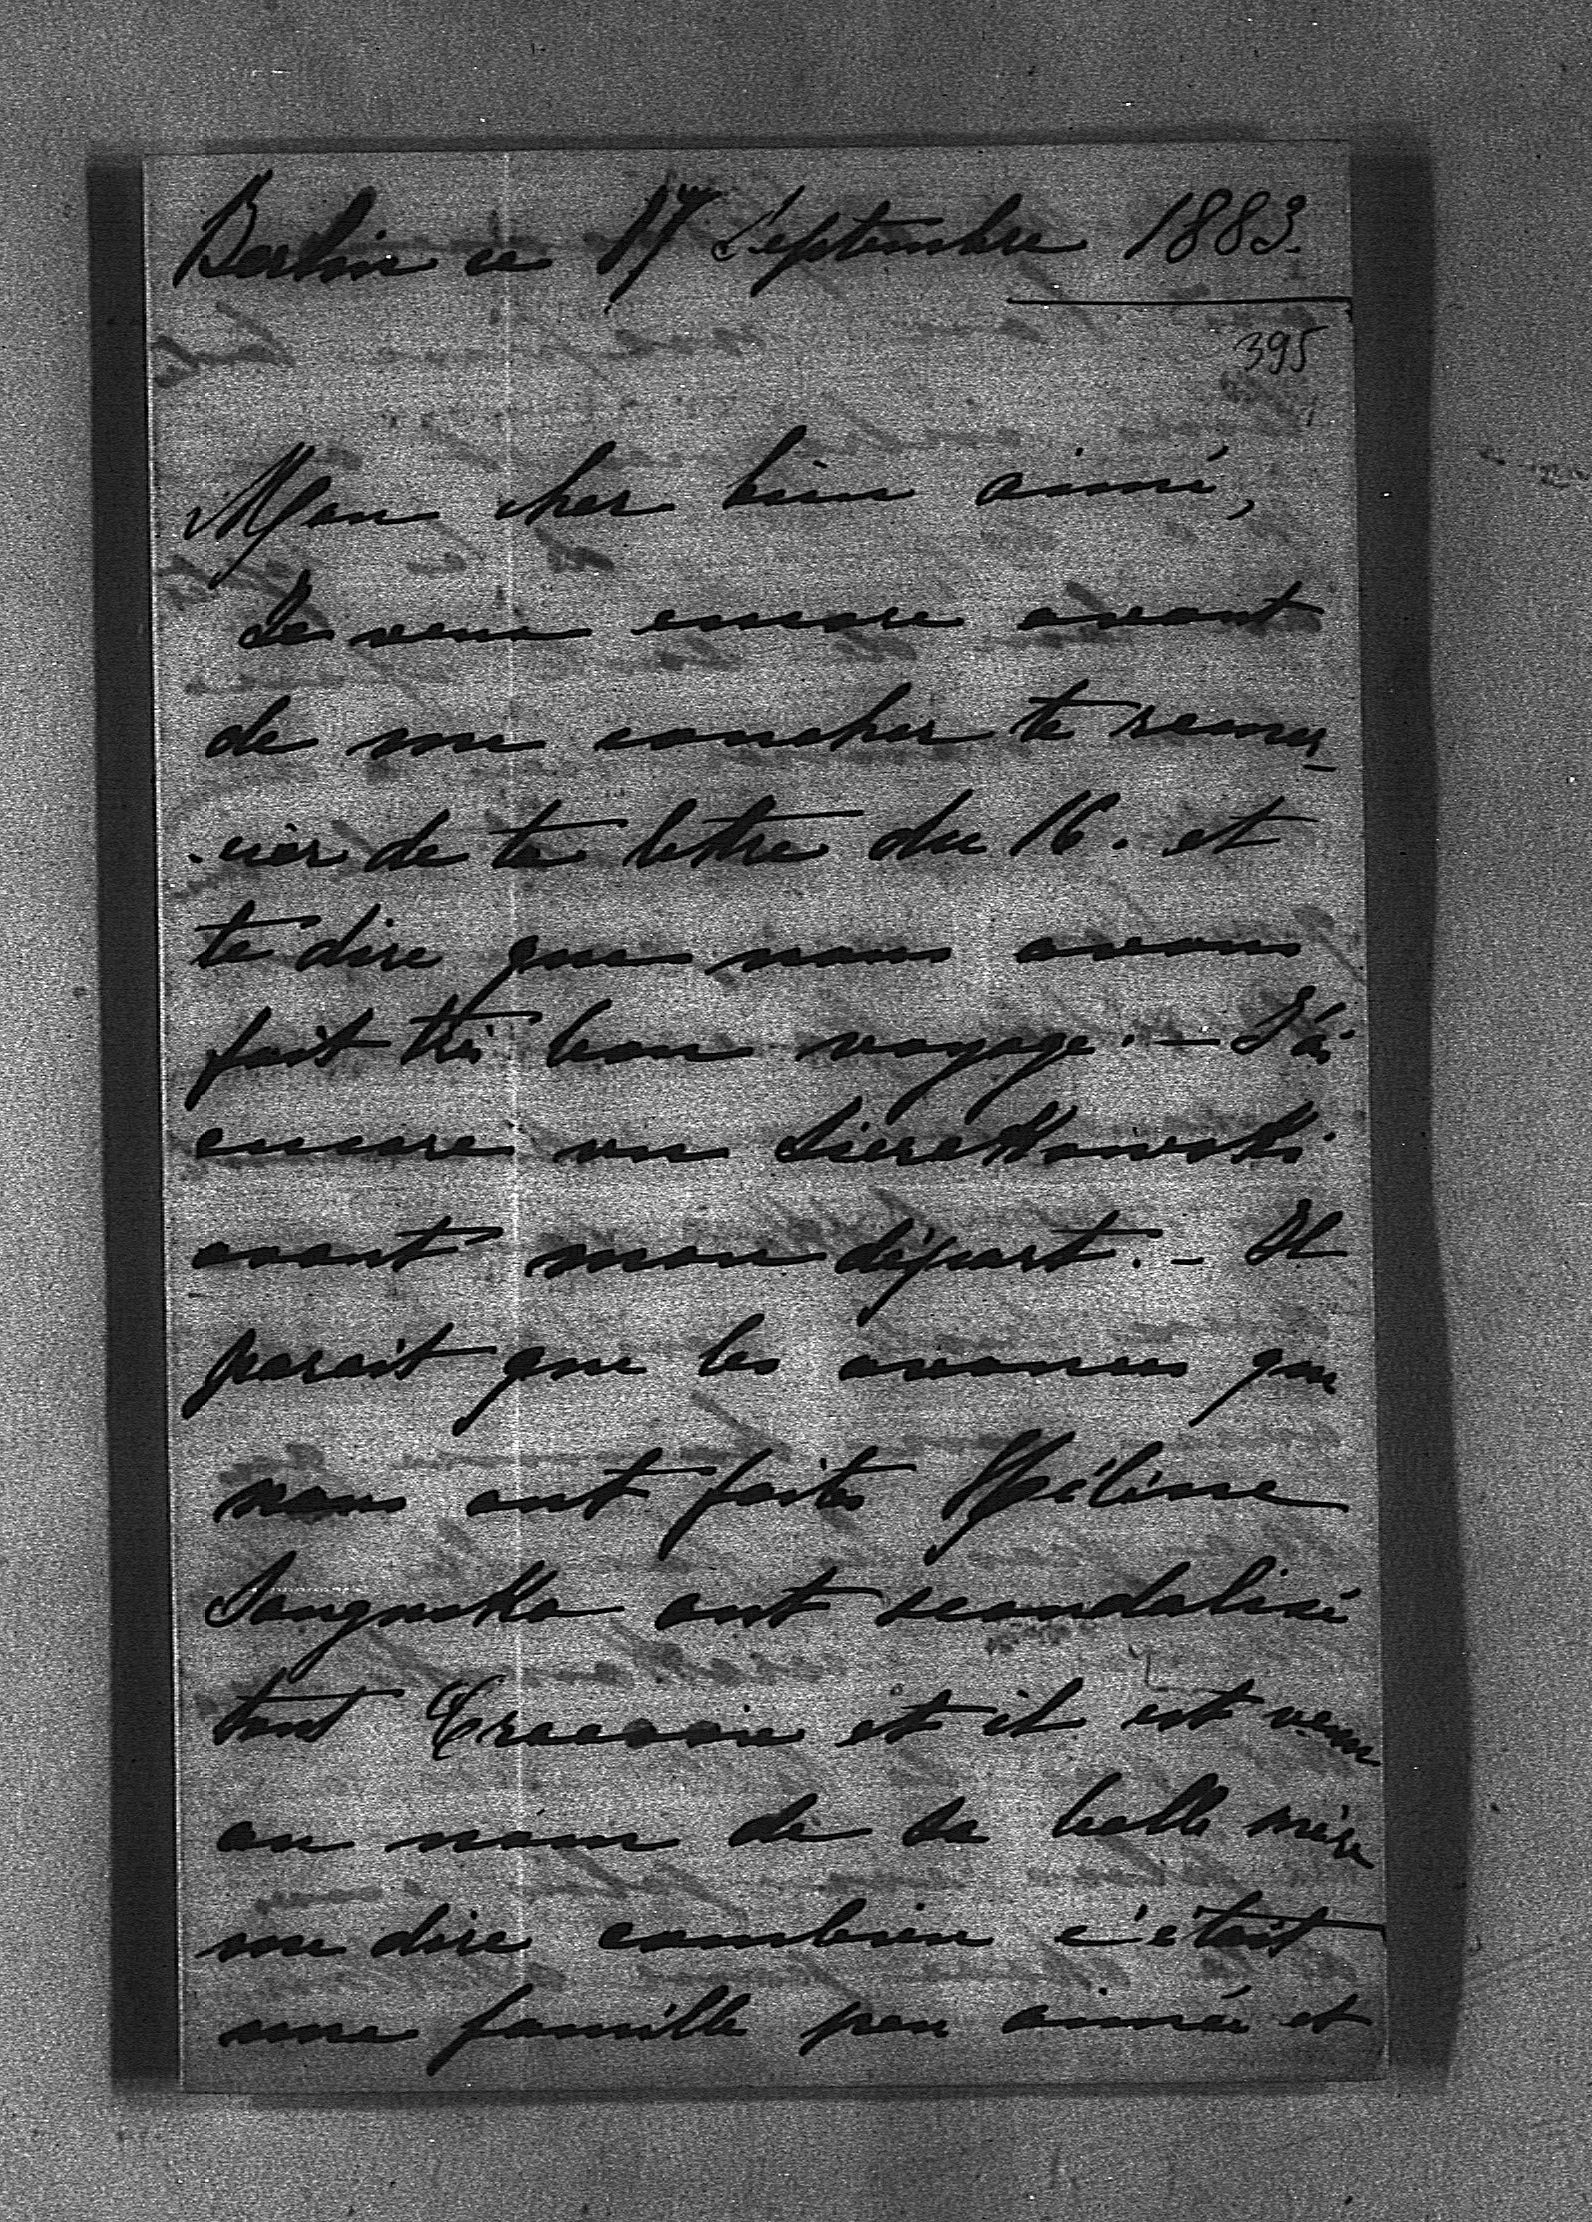 Berlin ce 17 Septembre 1883.
395
Mon cher bien aimé,
Je veux encore avant
de me coucher te remer-
-cier de ta lettre du 16. et
te dire que nous avons
fait très bon voyage. - J'ai
encore vu
avant mon départ. - Il
parait que les avances que
nous ont faites Hélène
Sanguska ont scandalisé
tout Cracovie et il est venu
au nom de sa belle mère
me dire combien c'était
une famille peu aimée et